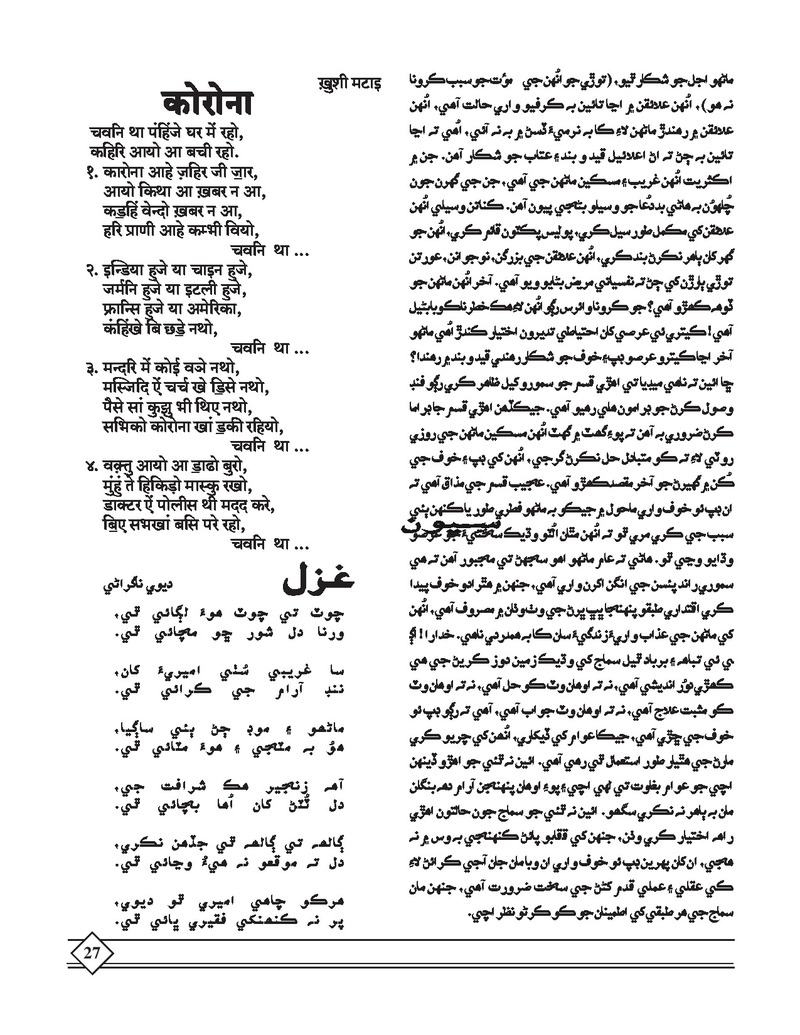 ख़ुशी मटाइ
कोरोना
चवनि था पंहिंजे घर में रहो,
कहिरि आयो आ बची रहो.
१. कारोना आहे ज़हिर जी ॼार,
आयो किथा आ ख़बर न आ,
कडहिं वेन्दो ख़बर न आ,
हरि प्राणी आहे कम्भी वियो,
चवनि था ...
२. इन्डिया हुजे या चाइन हुजे,
जर्मनि हुजे या इटली हुजे,
फ्रान्सि हुजे या अमेरिका,
कंहिंखे बि छडे नथो,
चवनि था ...
३. मन्दरि में कोई वञे नथो,
मस्जिदि ऐं चर्च खे डिसे नथो,
पैसे सां कुझु भी थिए नथो,
सभिको कोरोना खां डकी रहियो,
चवनि था ...
४. वक़्तु आयो आ डाढो बुरो,
मुंहुं ते हिकिड़ो मास्कु रखो,
डाक्टर ऐं पोलीस थी मदद करे,
बिए सभखां बसि परे रहो,
चवनि था ...
غزل
ديوي ناگراڻي
چوٽ تي چوٽ هوءَ لڳائي ٿي،
ورنا دل شور ڇو مچائي ٿي.
سا غريبي سُٺي اميريءَ کان،
ننڊ آرام جي ڪرائي ٿي.
ماڻهو ۽ موڊ ڄڻ ٻئي ساڳيا،
هوُ به مٽجي ۽ هوءَ مٽائي ٿي.
آهه زنجير هڪ شرافت جي،
دل ٽُٽڻ کان اُها بچائي ٿي.
ڳالهه تي ڳالهه ٿي جڏهن نڪري،
دل ته موقعو نه هيءُ وڃائي ٿي.
هرڪو چاهي اميري ٿو ديوي،
پر نه ڪنهنکي فقيري ڀائي ٿي.
ماڻهو اجل جو شڪار ٿيو، (توڙي جو اُنهن جي موُت جو سبب ڪرونا
نه هو)، اُنهن علائقن ۾ اڃا تائين به ڪرفيو واري حالت آهي، اُنهن
علائقن ۾ رهندڙ ماڻهن لاءِ ڪا به نرميءَ ڏسڻ ۾ به نه آئي، اُهي ته اڃا
تائين به ڄڻ ته اڻ اعلانيل قيد و بند ۽ عتاب جو شڪار آهن. جن ۾
اڪثريت اُنهن غريب ۽ مسڪين ماڻهن جي آهي، جن جي گهرن جون
چُلهيون به هاڻي بددُعا جو وسيلو بڻجي پيون آهن. ڪئاتن وسيلي اُنهن
علائقن کي مڪمل طور سيل ڪري، پوليس پڪٽون قائم ڪري، اُنهن جو
گهر کان ٻاهر نڪرڻ بند ڪري، اُنهن علائقن جي بزرگن، نوجوانن، عورتن
توڙي ٻارڙن کي ڄڻ ته نفسياتي مريض بڻايو ويو آهي. آخر اُنهن ماڻهن جو
ڏوهه ڪهڙو آهي؟ جو ڪرونا وائرس رڳو اُنهن لاءِ هڪ خطرناڪ وبا بڻيل
آهي! ڪيتري ئي عرصي کان احتياطي تدبيرون اختيار ڪندڙ اُهي ماڻهو
آخر اڃا ڪيترو عرصو ڊپ ۽ خوف جو شڪار رهندي قيد و بند ۾ رهندا؟
ڇا ائين ته ناهي ميڊيا تي اهڙي قسم جو سمورو کيل ظاهر ڪري رڳو فنڊ
وصول ڪرڻ جو پرامون هلي رهيو آهي. جيڪڏهن اهڙي قسم جا ڊراما
ڪرڻ ضروري به آهن ته پوءِ گهٽ ۾ گهٽ اُنهن مسڪين ماڻهن جي روزي
روٽي لاءِ ته ڪو متبادل حل نڪرڻ گرجي، اُنهن کي ڊپ ۽ خوف جي
کُن ۾ گهيرڻ جو آخر مقصد ڪهڙو آهي. عجيب قسم جي مذاق آهي ته
ان ڊپ ئو خوف واري ماحول ۾ جيڪو به ماڻهو فطري طور يا ڪنهن ٻئي
سبب جي ڪري مري ٿو ته اُنهن مٿان اُٽو وڌيڪ سختيءَ جو عرصو
وڌايو وڃي ٿو. هاڻي ته عام ماڻهو اهو سجهڻ تي مجبور آهن ته هي
سموري راند پئسن جي انگن اکرن واري آهي، جنهن ۾ هٿرادو خوف پيدا
ڪري اقتداري طبقو پنهنجا ڀڀ ڀرڻ جي وٺ وٺان ۾ مصروف آهي، اُنهن
کي ماڻهن جي عذاب واريءَ زندگيءَ سان ڪا به همدردي ناهي. خدارا! اڳ
ئي تباهه ۽ برباد ٿيل سماج کي وڌيڪ زمين دوز ڪرڻ جي هي
ڪهڙي دوُرانديشي آهي، نه ته اوهان وٽ ڪو حل آهي، نه ته اوهان وٽ
ڪو مثبت علاج آهي، نه ته اوهان وٽ جواب آهي، آهي ته رڳو ڊپ ئو
خوف جي ڇڙي آهي، جيڪا عوام کي ڏيکاري، اُنهن کي چريو ڪري
مارڻ جي هٿيار طور استعمال ٿي رهي آهي. ائين نه ٿئي جو اهڙو ڏينهن
اچي جو عوام بغاوت تي لهي اچي ۽ پوءِ اوهان پنهنجن آرام دهه بنگلن
مان به ٻاهر نه نڪري سگهو. ائين نه ٿئي جو سماج جون حالتون اهڙي
راهه اختيار ڪري وٺن، جنهن کي ققابو پائڻ ڪنهنجي به وس ۾ نه
هجي، ان کان پهرين ڊپ ئو خوف واري ان وبا مان جان آجي ڪرائڻ لاءِ
ڪي عقلي ۽ عملي قدم کڻڻ جي سخت ضرورت آهي، جنهن مان
سماج جي هر طبقي کي اطمينان جو ڪو ڪرڻو نظر اچي.
27